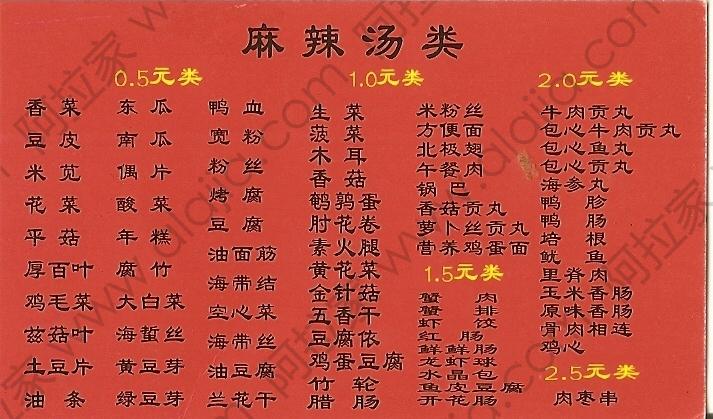 麻辣汤类
0.5元类
香菜
豆皮
米苋
花菜
平菇
厚百叶
鸡毛菜
兹菇叶
土豆片
油条
东瓜
南瓜
偶片
酸菜
年糕
腐竹
大白菜
海蜇丝
黄豆芽
绿豆芽
鸭血
宽粉
粉丝
烤腐
豆腐
油面筋
海带结
空心菜
海带丝
油豆腐
兰花干
1.0元类
生菜
菠菜
木耳
香菇
鹌鹑蛋
肘花卷
素火腿
黄花菜
金针菇
五香干
豆腐依
鸡蛋豆腐
竹轮
腊肠
米粉丝
方便面
北极翅
午餐肉
锅巴
香菇贡丸
萝卜丝贡丸
营养鸡蛋面
1.5元类
蟹肉
蟹排
虾饺
红肠
鲜鲜肠
龙虾球
水晶包
鱼皮豆腐
开花肠
2.0元类
牛肉贡丸
包心牛肉贡丸
包心鱼丸
包心贡丸
海参丸
鸭胗
鸭肠
培根
鱿鱼
里脊肉
玉米香肠
原味香肠
骨肉相连
鸡心
2.5元类
肉枣串
阿拉家 www.alajia.com